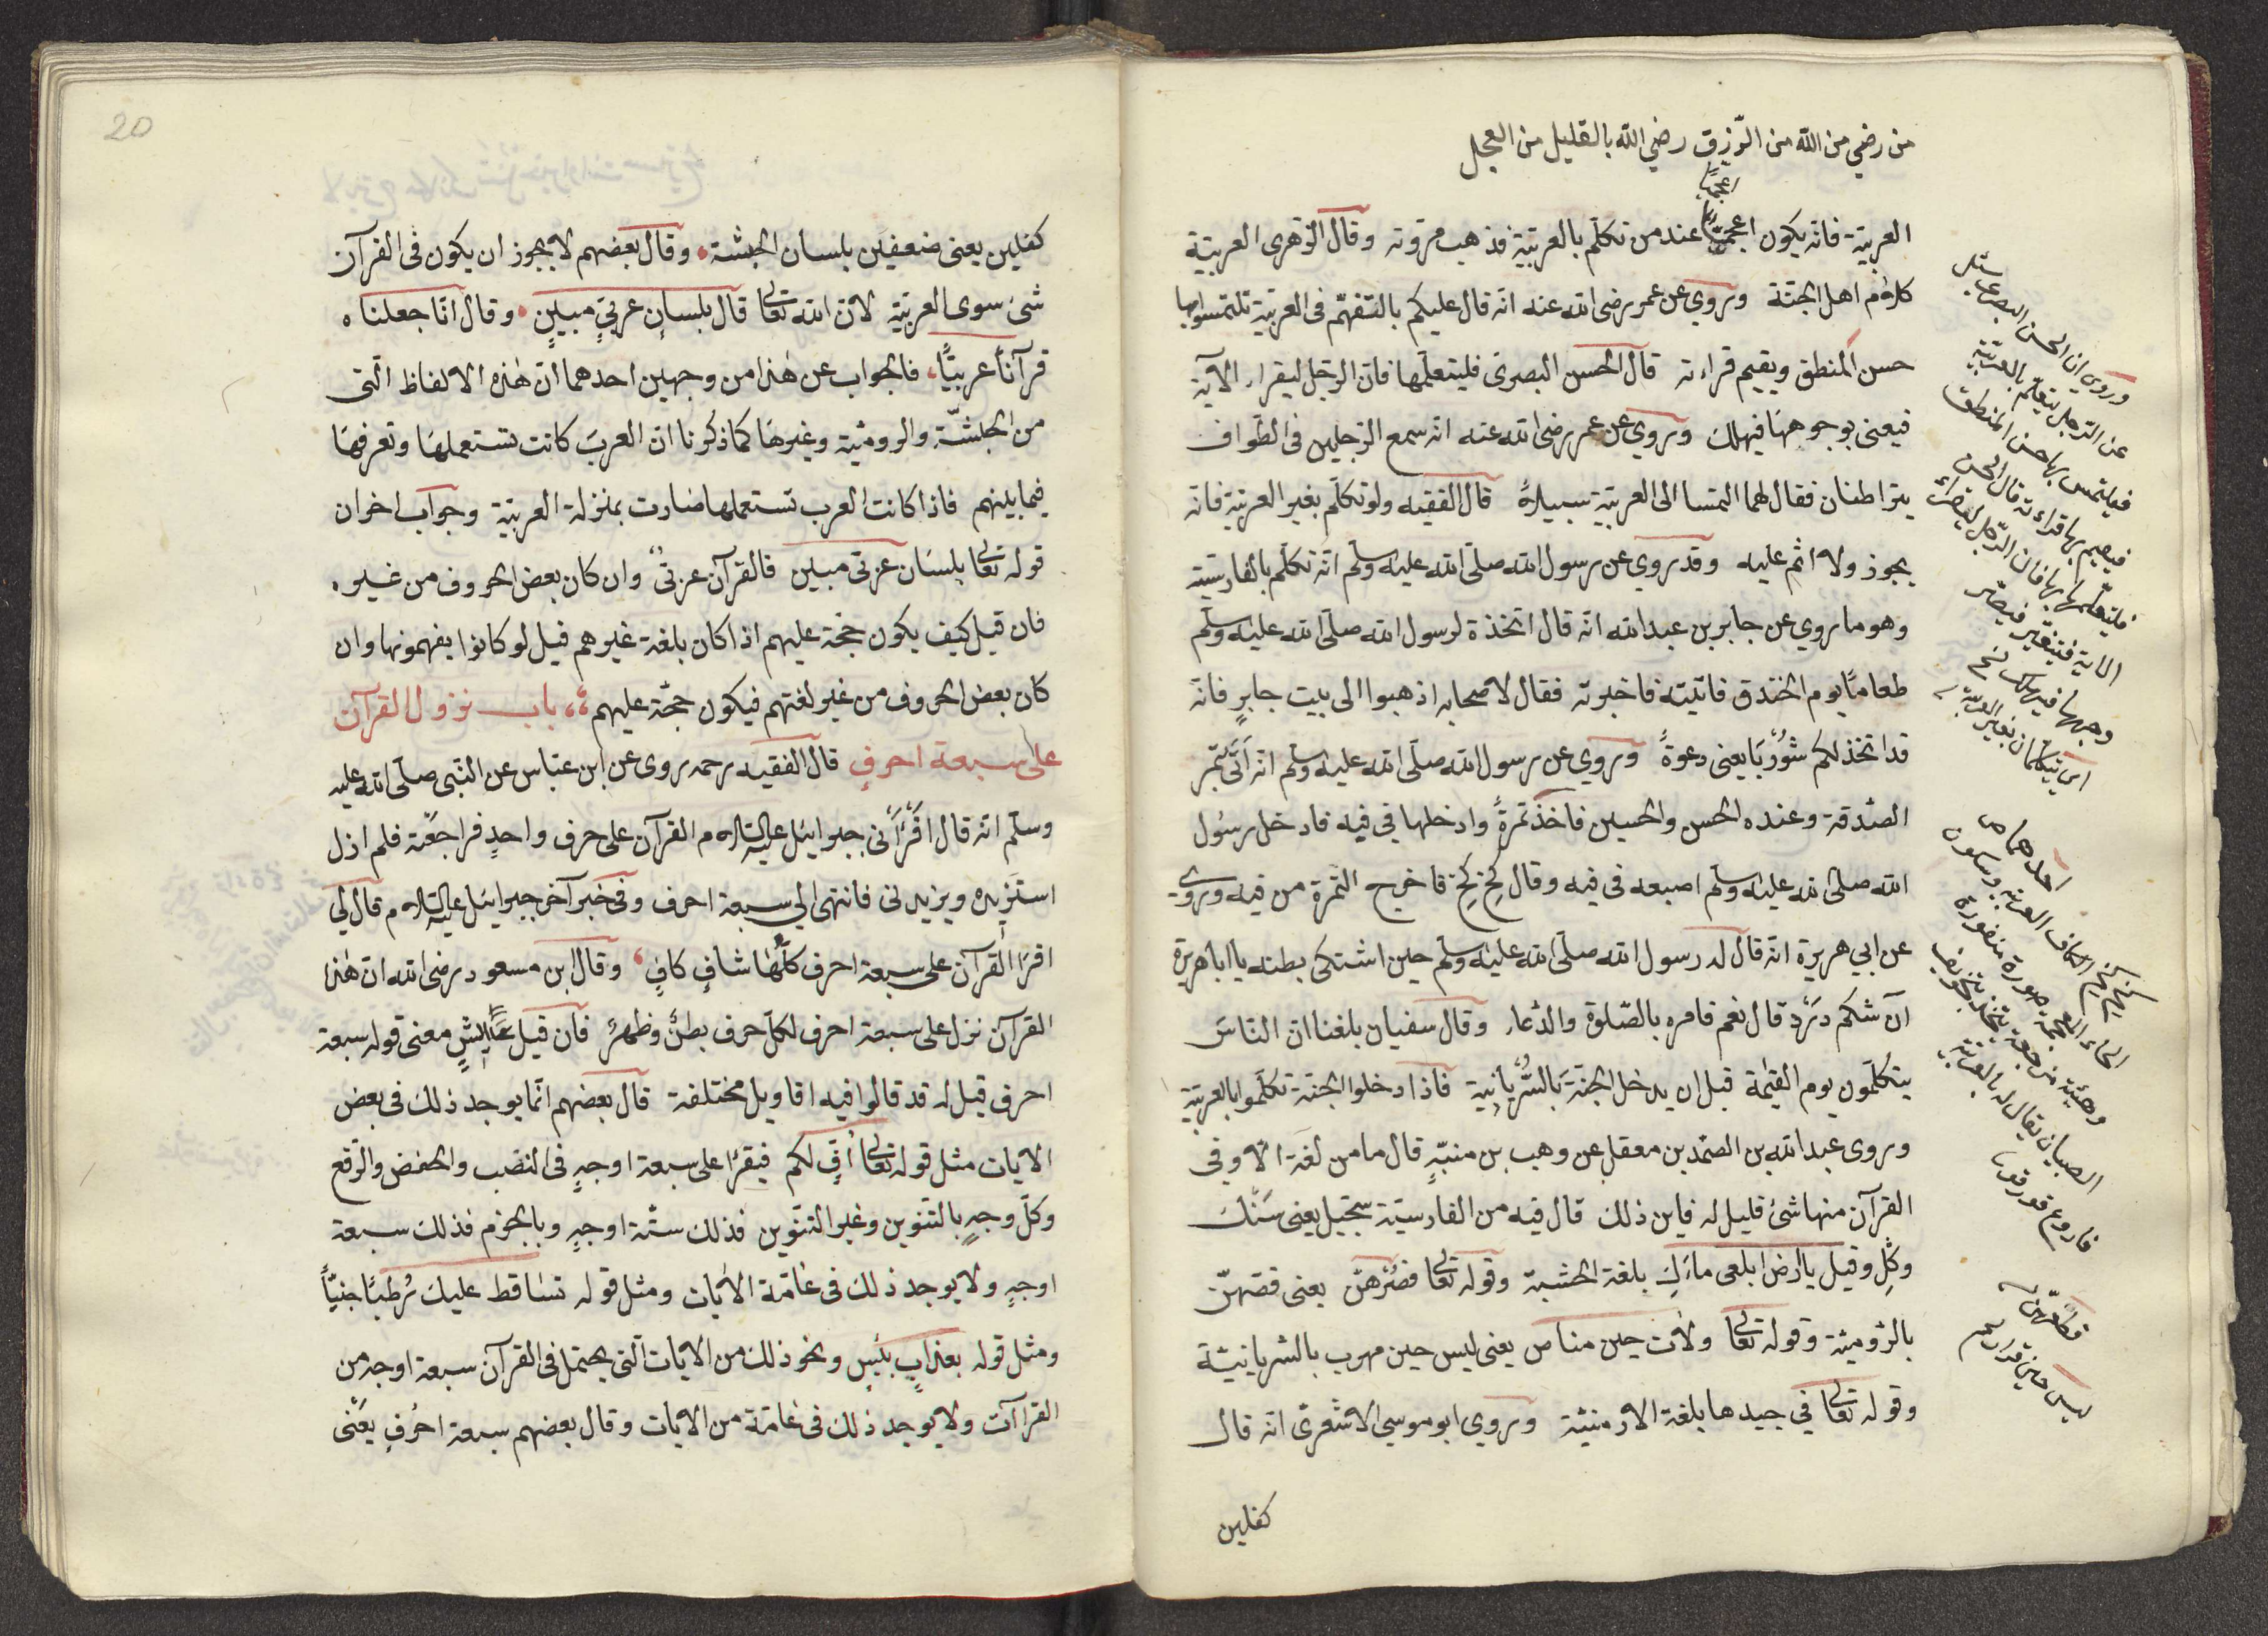 من رضي من الله من الرّزق رضي الله بالقليل من العمل
اعجميا
العربيّة فانه يكون اعجميّا عند من تكلّم بالعربيّة فذهب مروته وقال الزّهرى العربيّة
كلام اهل الجنّة وروي عن عمر رضى الله عنه انّه قال عليكم بالتّفهّم فى العربيّة تلتمسوا بها
حسن المنطق ويقيم قراءته قال الحسن البصرىّ فليتعلّمها فانّ الرّجل ليقراء الآية
فيعنى بوجوهها فيهلك وروي عن عمر رضى الله عنه انّه سمع الرّجلين فى الطّواف
يتراطنان فقال لهما التمسا الى العربيّة سبيلاً قال الفقيه ولو تكلّم بغير العربيّة فانّه
يجوز ولا اثم عليه وقد روي عن رسول الله صلّى الله عليه وسلّم انّه تكلّم بالفارسيّة
وهو ما روي عن جابر بن عبد الله انّه قال اتخذة لرسول الله صلّى الله عليه وسلّم
طعاما يوم الخندق فاتيته فاخبرته فقال لاصحابه اذهبوا الى بيت جابرٍ فانّه
قد اتخذ لكم شُوْرْبَا يعنى دعوةً وروي عن رسول الله صلّى الله عليه وسلّم انّه اَتَى بتمر
الصّدقة وعنده الحسن والحسين فاخذ تمرةً وادخلها في فيه فادخل رسول
الله صلّى الله عليه وسلّم اصبعه فى فيه وقال كِخْ كِخْ فاخرج التّمرة من فيه وروي
عن ابي هريرة انّه قال له رسول الله صلّى الله عليه وسلّم حين اشتكى بطنه يا ابا هريرة
آن شكم دَرْد قال نعم فامره بالصّلوة والدّعاء وقال سفيان بلغنا ان الناسَ
يتكلّمون يوم القيٰمة قبل ان يدخل الجنّة بالسُّرْيانية فاذا دخلوا الجنّة تكلّموا بالعربيّة
وروى عبد الله بن الصّمد بن معقل عن وهب بن منبّهٍ قال ما من لغة الا وفي
القرآن منها شئ قليل له فاين ذلك قال فيه من الفارسيّة سجّيل يعنى سَنْك
وكِل وقيل يا ارض ابلعى ماءكِ بلغة الحشبة وقوله تعالى فصُرْهنّ يعنى قصّهنّ
بالرّوميّة وقوله تعالى ولات حين مناص يعنى ليس حين مهرب بالسّريانيّة
وقوله تعالى في جيدها بلغة الارمنيّة وروي ابو موسي الاشعرىّ انّه قال
كفلين
وروي ان الحسن البصري سئل
عن الرّجل يتعلّم بالعربيّة
فيلتمس بها حسن المنطق
فيقيم بها قراءته قال الحسن
فليتعلّمها بها فان الرّجل ليقراء
الاية فيتغيّر فيصير
وجهها فيهلك نسخ
اي يتكلّمان بغير العربيّة
احدهما ص
الخاء المعجمة
الصبيان يقال له بالعربيّة
20
كفلين يعنى ضعفين بلسان الحبشة. وقال بعضهم لا يجوز ان يكون فى القرآن
شئ سوى العربيّة لانّ الله تعالى قال بلسانٍ عربيٍّ مبينٍ. وقال انّا جعلناه
قرآناً عربيّاً، فالجواب عن هٰذا من وجهين احدهما انّ هٰذه الالفاظ الّتى
من الحبشّة والروميّة وغيرها كما ذكرنا انّ العربَ كانت تستعملها وتعرفها
فيما بينهم فاذا كانت العرب تستعملها ضارت بمنزلة العربيّة وجواب اخر ان
قوله تعالى بلسان عربىّ مبين فالقرآن عربىٌّ وان كان بعض الحروف من غيره.
فان قيل كيف يكون حجّة عليهم اذا كان بلغة غيرهم قيل لو كانوا يفهمونها وان
كان بعض الحروف من غير لغتهم فيكون حجّة عليهم، باب نزول القرآن
على سبعة احرفٍ قال الفقيه رحمه روى عن ابن عبّاس عن النّبى صلّى الله عليه
وسلّم انّه قال اقْرَأَنى جبرايئل عليه السّلام القرآن على حرف واحدٍ فراجعْته فلم ازل
استزيده ويزيدنى فانتهى الي سبعة احرف وفى خبر آخر جبرايئل عليه السّلام قال لي
اقرأ القرآن على سبعة احرف كلّها شافٍ كافٍ، وقال ابن مسعود رضى الله انّ هٰذا
القرآن نزل على سبعة احرف لكلّ حرف بطنٌ وظهرٌ فان قيل علٰى ايشٍ معنى قوله سبعة
احرف قيل له قد قالوا فيه اقاويل مختلفة قال بعضهم انّما يوجد ذلك فى بعض
الايات مثل قوله تعالى اُفٍّ لكم فيقرأ على سبعة اوجهٍ فى النّصب والخفض والرّفع
وكلّ وجهٍ بالتّنوين وغير التّنوين فذلك ستّة اوجهٍ وبالجزم فذلك سبعة
اوجهٍ ولا يوجد ذلك فى عامّة الايات ومثل قوله تساقط عليك رُطبًا جنيّاً
ومثل قوله بعذابٍ بئيسٍ ونحو ذلك من الايات الّتى يحتمل فى القرآن سبعة اوجه من
القراآت ولا يوجد ذلك فى عامّة من الايات وقال بعضهم سبعة احرفٍ يعْنى